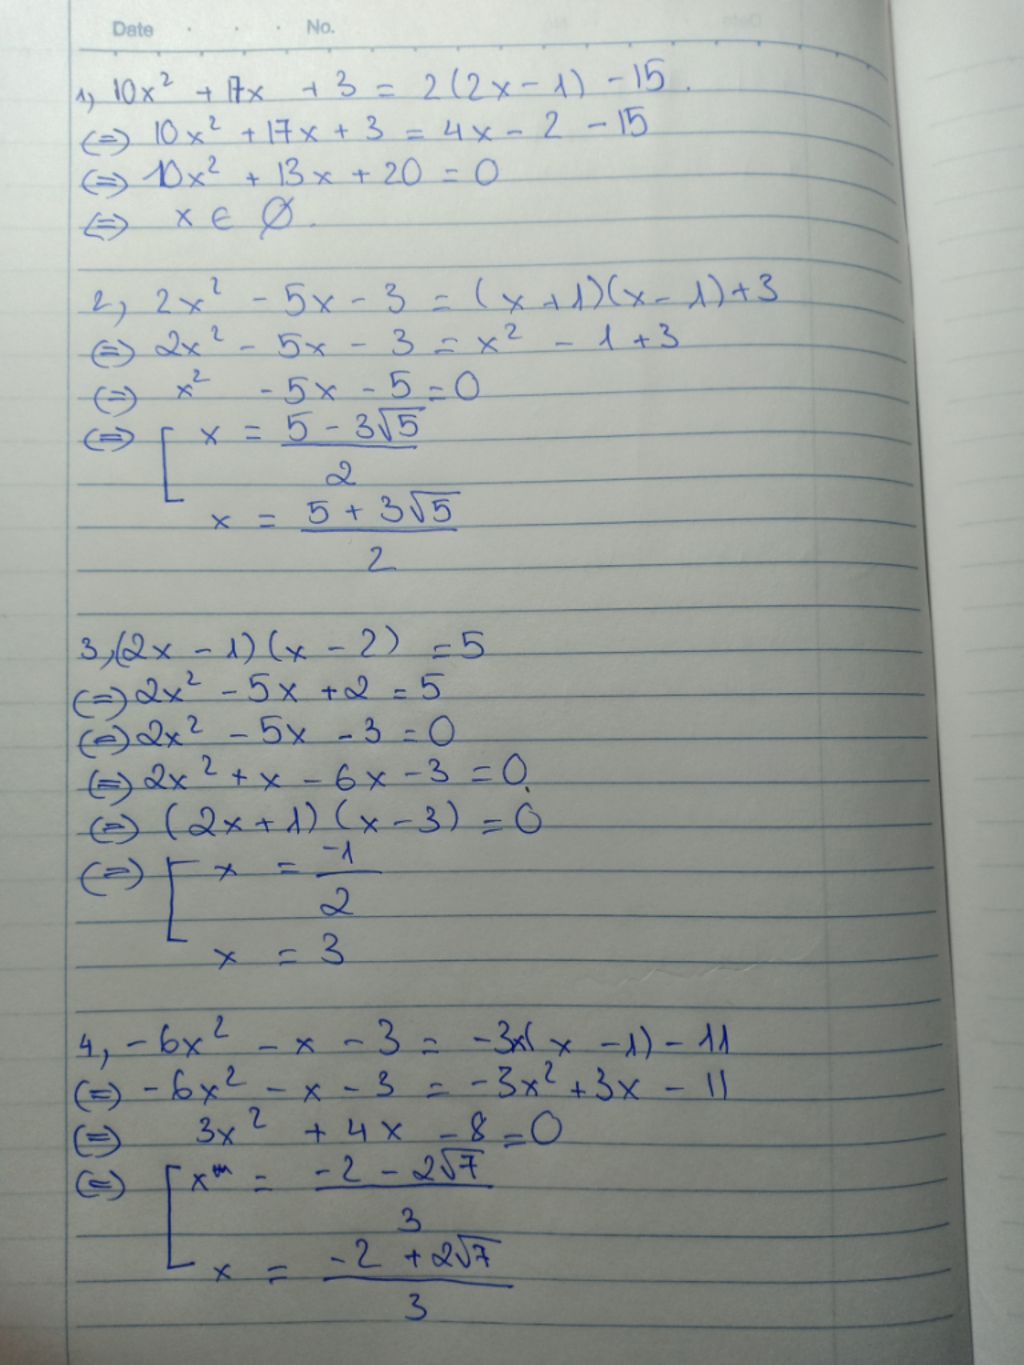 Date . . . No.
1, 10x² + 17x + 3 = 2(2x - 1) - 15.
(=) 10x² + 17x + 3 = 4x - 2 - 15
(=) 10x² + 13x + 20 = 0
(=) x ∈ Ø.
2, 2x² - 5x - 3 = (x + 1)(x - 1) + 3
(=) 2x² - 5x - 3 = x² - 1 + 3
(=) x² - 5x - 5 = 0
(=) [ x = (5 - 3√5)/2
x = (5 + 3√5)/2
3, (2x - 1)(x - 2) = 5
(=) 2x² - 5x + 2 = 5
(=) 2x² - 5x - 3 = 0
(=) 2x² + x - 6x - 3 = 0
(=) (2x + 1)(x - 3) = 0
(=) [ x = -1/2
x = 3
4, -6x² - x - 3 = -3x(x - 1) - 11
(=) -6x² - x - 3 = -3x² + 3x - 11
(=) 3x² + 4x - 8 = 0
(=) [ x = (-2 - 2√7)/3
x = (-2 + 2√7)/3